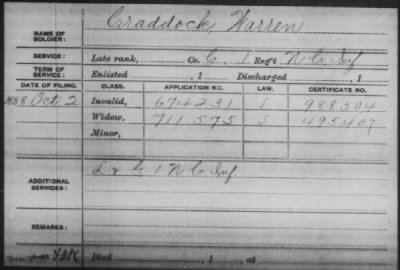 NAME OF SOLDIER: Craddock, Warren
SERVICE: Late rank, Co. G, 1 Reg't N. C. Inf
TERM OF SERVICE: Enlisted , 1 Discharged , 1
DATE OF FILING. CLASS. APPLICATION NO. LAW. CERTIFICATE NO.
1888 Oct. 2 Invalid, 674231 988504
Widow, 711,575 495407
Minor,
ADDITIONAL SERVICES: L & G 1 N C Inf
REMARKS:
Died , 1 , at